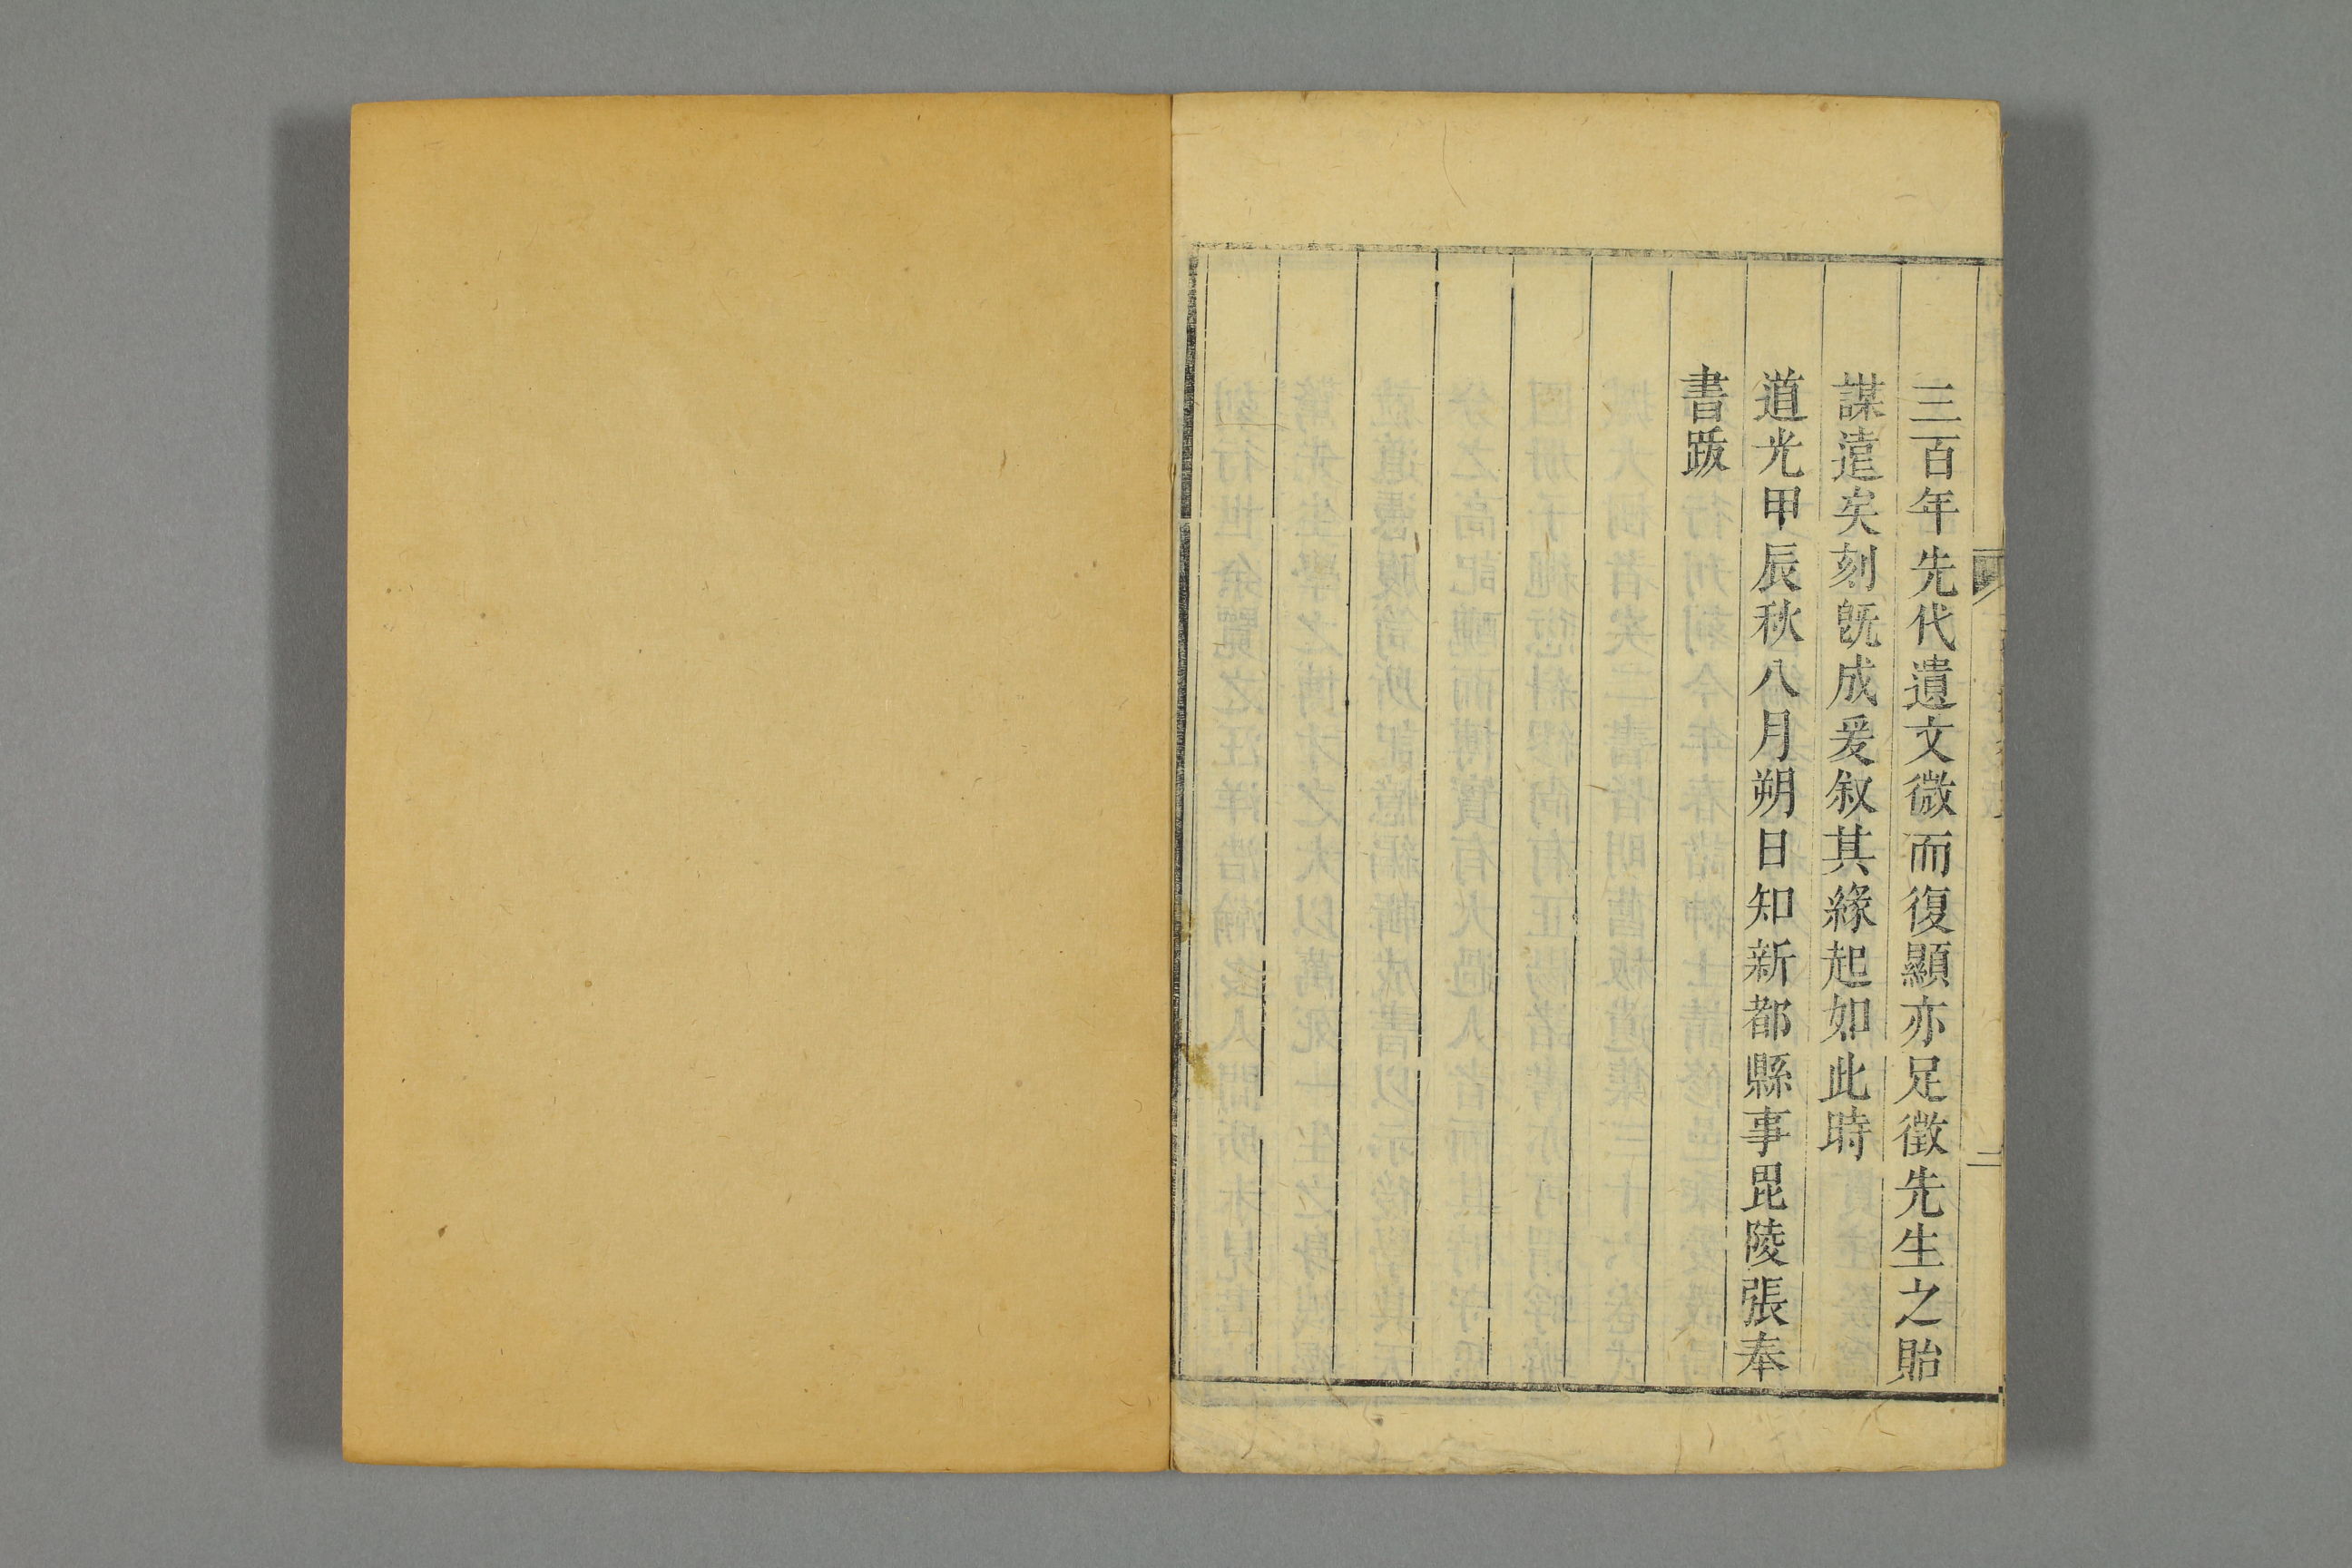 三百年先代遺文微而復顯亦足徵先生之貽
謀遠矣刻既成爰叙其緣起如此時
道光甲辰秋八月朔日知新都縣事毘陵張奉
書跋
二